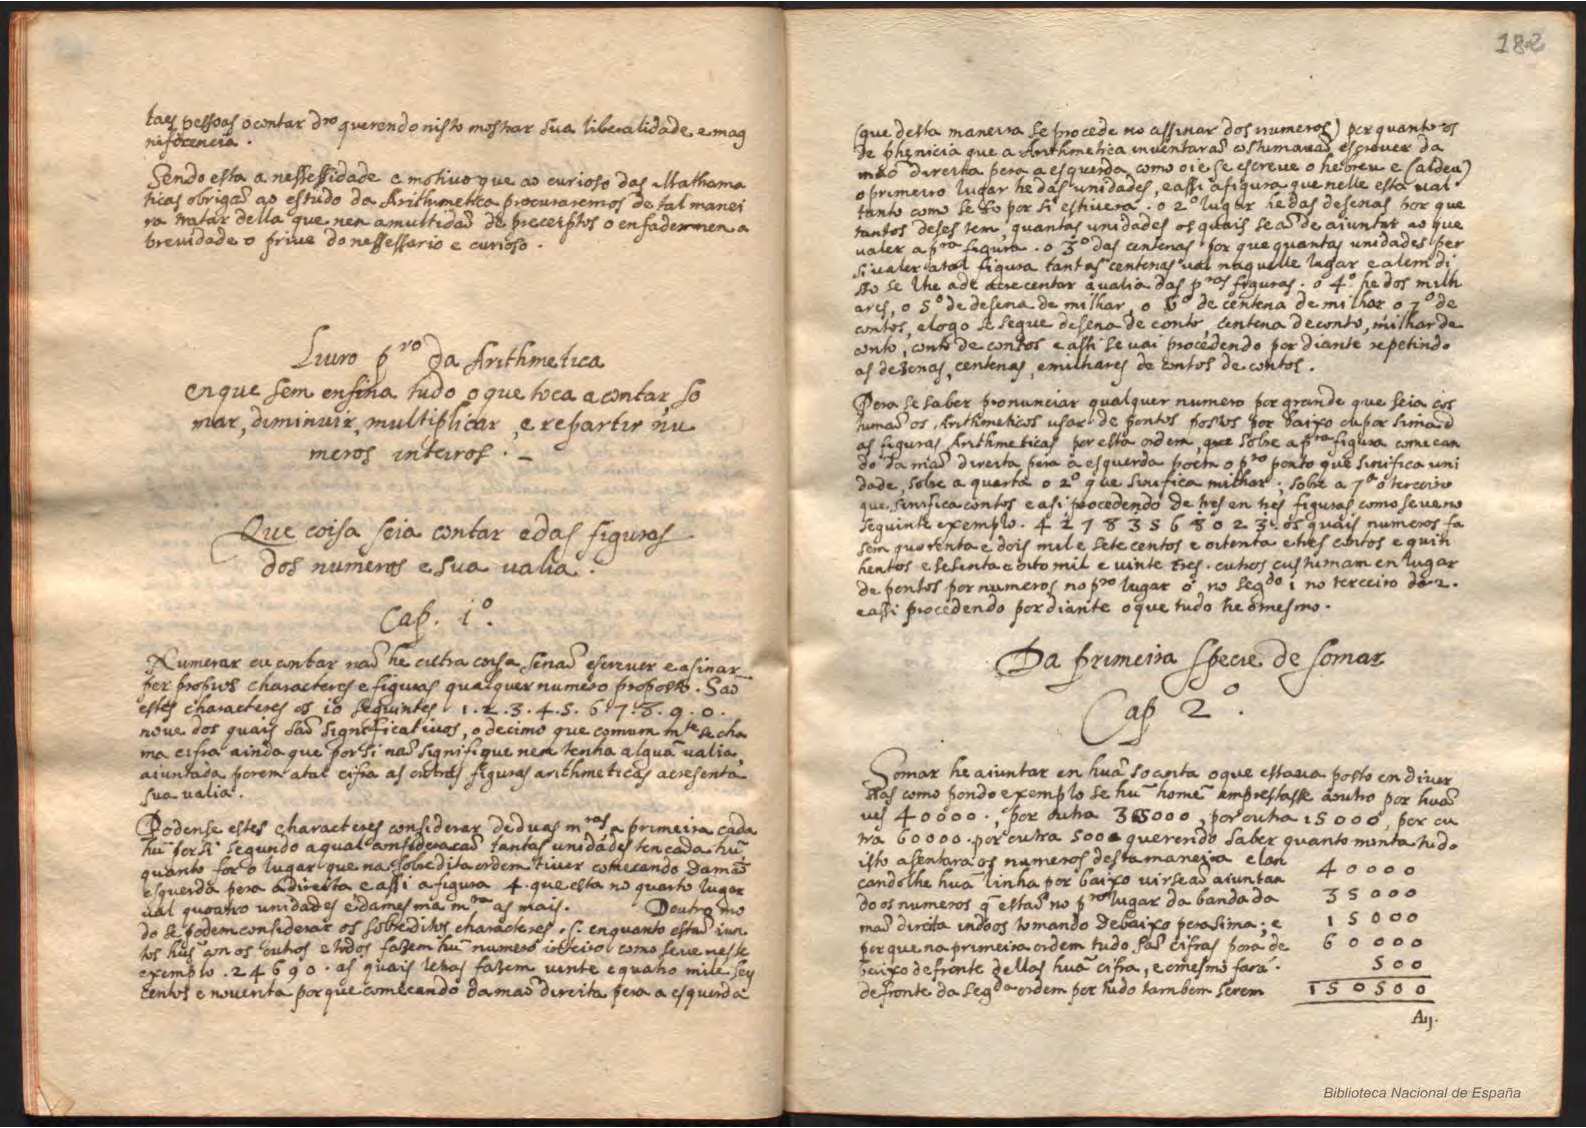 taes pessoas o contar dro querendo nisto mostrar sua liberalidade e mag
nificencia.
Sendo esta a nessessidade e motivo que ao curioso das Mathama
ticas obrigaõ ao estudo da Arithmetica procuraremos de tal manei
ra tratar della que nen a multidaõ de preceiptos o enfade nen a
brevidade o prive do nessessario e curioso.
Livro pro da Arithmetica
en que sem ensina tudo o que toca a contar, so
mar, diminuir, multiplicar, e repartir nu
meros inteiros.
Que coisa seia contar e das figuras
dos numeros e sua valia.
Cap. 1º.
Numerar ou contar naõ he outra coisa senaõ escrever e asinar
per proprios characteres e figuras qualquer numero proposto. Saõ
estes characteres os 10 seguintes 1. 2. 3. 4. 5. 6. 7. 8. 9. 0.
nove dos quais saõ significativos, o decimo que comummte se cha
ma cifra ainda que por si naõ signifique nem tenha alguã valia,
aiuntada porem a tal cifra as outras figuras arithmeticas acresenta
sua valia.
Podense estes characteres considerar de duas mras a primeira cada
hũ per si segundo a qual consideracaõ tantas unidades ten cada hũ
quanto for o lugar que na sobredita ordem tiver comecando da maõ
esquerda pera a direita e assi a figura 4. que esta no quarto lugar
val quatro unidades e da mesma mra as mais. Doutro mo
do se podem considerar os sobreditos characteres .s. enquanto estaõ iun
tos hũs con os outros e todos fazem hũ numero inteiro como se ve neste
exemplo. 24690. as quais letras fazem vinte e quatro mil e seis
centos e noventa porque comecando da maõ direita pera a esquerda
182
(que desta maneira se procede no assinar dos numeros) por quanto os
de phenicia que a Arithmetica inventaraõ costumavaõ escrever da
maõ direita pera a esquerda como oie se escreve o hebreu e Caldeu)
o primeiro lugar he das unidades, e assi a figura que nelle esta val
tanto como se so por si estivera. o 2º lugar he das desenas por que
tantos deses tem, quantas unidades os quais se aõ de aiuntar ao que
valer a pra figura. o 3º das centenas por que quantas unidades per
si valer a tal figura tantas centenas val naquelle lugar e alem di
sto se lhe a de acrecentar a valia das pras figuras. o 4º he dos milh
ares, o 5º de desena de milhar, o 6º de centena de milhar o 7º de
contos, e logo se segue desena de conto, centena de conto, milhar de
conto, conto de contos e assi se vai procedendo por diante repetindo
as dezenas, centenas, e milhares de contos de contos.
Pera se saber pronunciar qualquer numero por grande que seia cos
tumaõ os Arithmeticos usar de pontos postos por baixo ou por sima d
as figuras Arithmeticas por esta ordem, que sobre a pra figura comecan
do da maõ direita pera a esquerda poem o pro ponto que sinifica uni
dade, sobre a quarta o 2º que sinifica milhar, sobre a 7a o terceiro
que sinifica contos e asi procedendo de tres en tres figuras como se ve no
seguinte exemplo. 42783568023. os quais numeros fa
sem quorenta e dois mil e sete centos e oitenta e tres contos e quin
hentos e sesenta e oito mil e vinte tres. outros custumam en lugar
de pontos por numeros no pro lugar 0 no segdo 1 no terceiro do 2.
e assi procedendo por diante o que tudo he o mesmo.
Da primeira specie de somar
Cap 2º.
Somar he aiuntar en huã so conta o que estava posto en diver
sas como pondo exemplo se hũ homẽ emprestasse a outro por huã
ves 40000., por outra 35000, por outra 15000, por ou
tra 60000. por outra 500 e querendo saber quanto monta tudo
isto asentara os numeros desta maneira e lan
candolhe huã linha por baixo virseaõ aiuntan
do os numeros q̃ estaõ no pro lugar da banda da
maõ direita indoos tomando debaixo pera sima; e
por que na primeira ordem tudo saõ cifras pora de
baixo defronte dellas huã cifra, e o mesmo fará
defronte da segda ordem por tudo tambem serem
40000
35000
15000
60000
500
150500
Aij.
Biblioteca Nacional de España